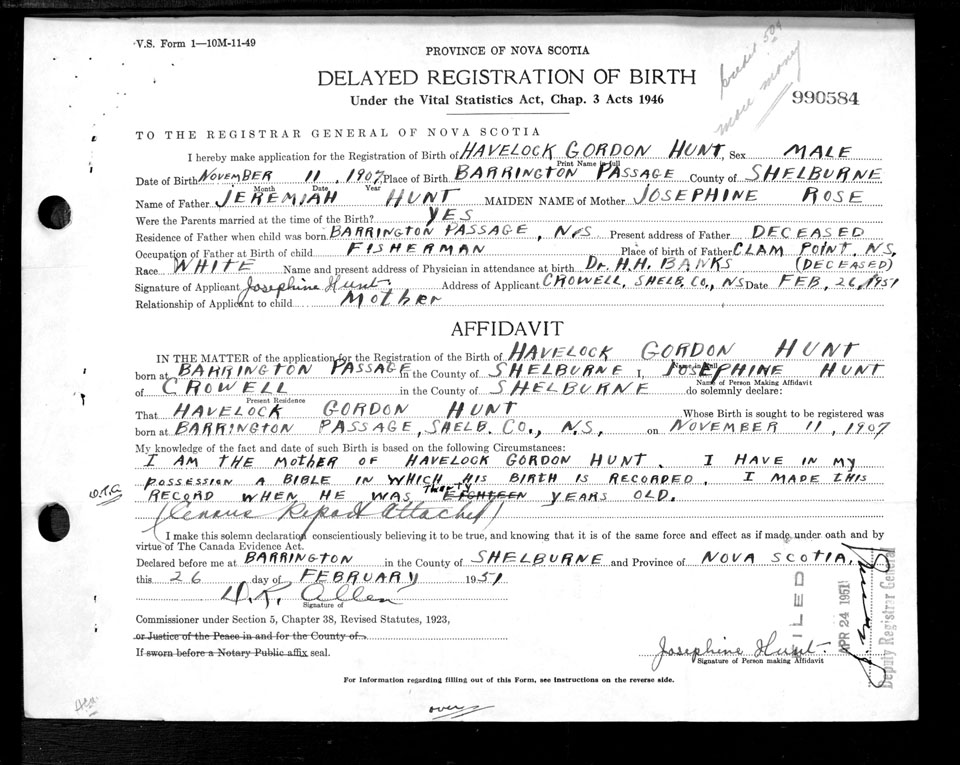 V.S. Form 1—10M-11-49
PROVINCE OF NOVA SCOTIA
credit 50¢
more money
DELAYED REGISTRATION OF BIRTH
Under the Vital Statistics Act, Chap. 3 Acts 1946
990584
TO THE REGISTRAR GENERAL OF NOVA SCOTIA
I hereby make application for the Registration of Birth of HAVELOCK GORDON HUNT, Sex MALE
Print Name in full
Date of Birth NOVEMBER 11, 1907 Place of Birth BARRINGTON PASSAGE County of SHELBURNE
Month Date Year
Name of Father JEREMIAH HUNT MAIDEN NAME of Mother JOSEPHINE ROSE
Were the Parents married at the time of the Birth? YES
Residence of Father when child was born BARRINGTON PASSAGE, N.S Present address of Father DECEASED
Occupation of Father at Birth of child FISHERMAN Place of birth of Father CLAM POINT, N.S,
Race WHITE Name and present address of Physician in attendance at birth Dr. H.H. BANKS (DECEASED)
Signature of Applicant Josephine Hunt Address of Applicant CROWELL, SHELB. CO., NS Date FEB, 26, 1951
Relationship of Applicant to child Mother
AFFIDAVIT
IN THE MATTER of the application for the Registration of the Birth of HAVELOCK GORDON HUNT
Name in full
born at BARRINGTON PASSAGE in the County of SHELBURNE I, JOSEPHINE HUNT
Name of Person Making Affidavit
of CROWELL in the County of SHELBURNE do solemnly declare:
Present Residence
That HAVELOCK GORDON HUNT Whose Birth is sought to be registered was
born at BARRINGTON PASSAGE, SHELB. CO., N.S, on NOVEMBER 11, 1907
My knowledge of the fact and date of such Birth is based on the following Circumstances:
I AM THE MOTHER OF HAVELOCK GORDON HUNT. I HAVE IN MY
POSSESSION A BIBLE IN WHICH HIS BIRTH IS RECORDED. I MADE THIS
RECORD WHEN HE WAS Thirty EIGHTEEN YEARS OLD.
(Census Report Attached)
I make this solemn declaration conscientiously believing it to be true, and knowing that it is of the same force and effect as if made under oath and by
virtue of The Canada Evidence Act.
Declared before me at BARRINGTON in the County of SHELBURNE and Province of NOVA SCOTIA,
this 26 day of FEBRUARY 1951
D.K. Allen
Signature of
Commissioner under Section 5, Chapter 38, Revised Statutes, 1923,
or Justice of the Peace in and for the County of
If sworn before a Notary Public affix seal.
Josephine Hunt
Signature of Person making Affidavit
FILED
APR 24 1951
Deputy Registrar General
For Information regarding filling out of this Form, see Instructions on the reverse side.
over